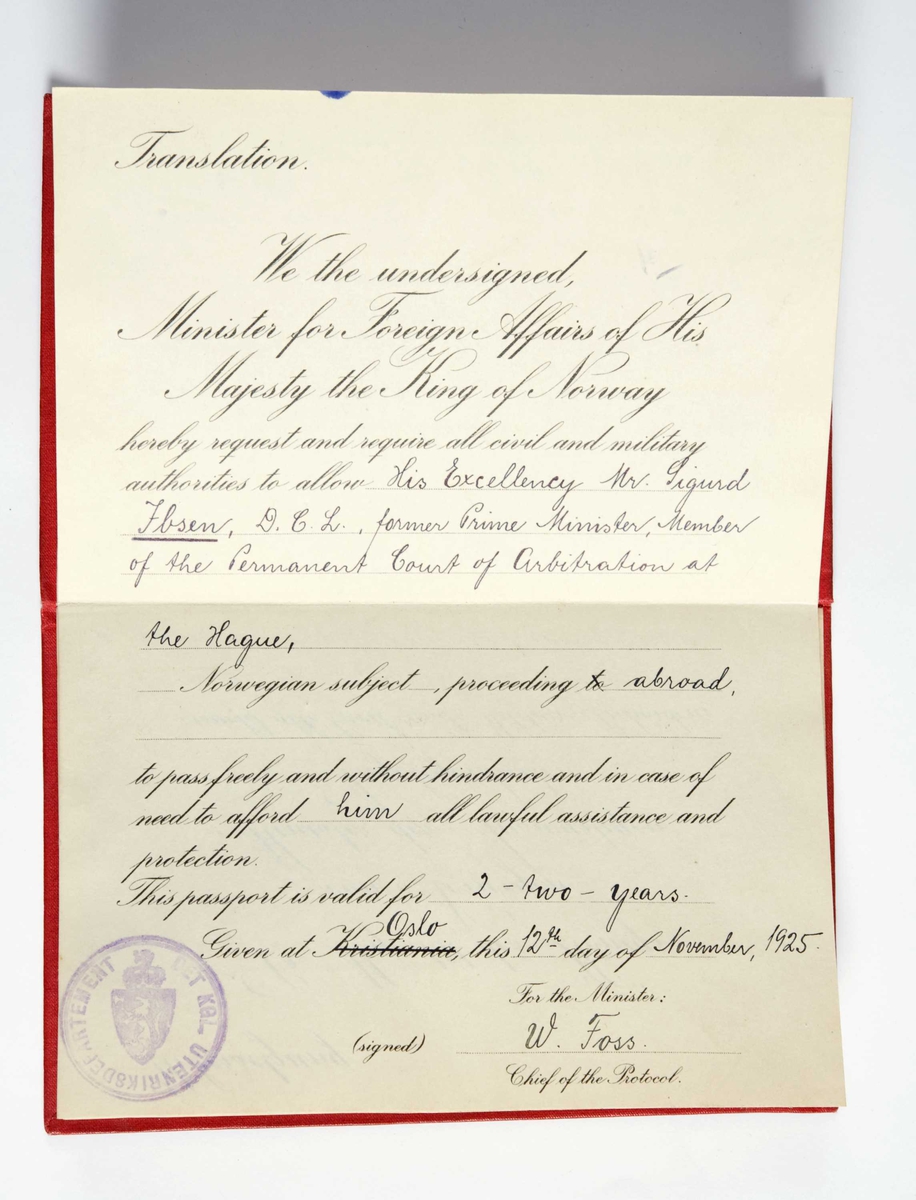 Translation.
We the undersigned,
Minister for Foreign Affairs of His
Majesty the King of Norway
hereby request and require all civil and military
authorities to allow His Excellency Mr. Sigurd
Ibsen, D. C. L., former Prime Minister, Member
of the Permanent Court of Arbitration at
the Hague,
Norwegian subject, proceeding to abroad,
to pass freely and without hindrance and in case of
need to afford him all lawful assistance and
protection.
This passport is valid for 2 - two - years.
Oslo
Given at Kristiania, this 12th day of November, 1925.
For the Minister:
(signed) W. Foss.
Chief of the Protocol.
DET KGL. UTENRIKSDEPARTEMENT